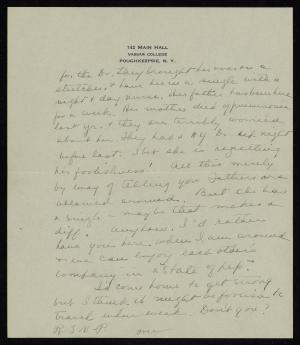 142 MAIN HALL
VASSAR COLLEGE
POUGHKEEPSIE, N. Y.
for the Dr. They brought her over on a
stretcher & have her in a single with a
night & day nurse. Her father has been here
for a week. His mother died of pneumonia
last yr. & they are terribly worried
about her. They had a NY Dr. out night
before last. I bet she is regretting
her foolishness! All this merely
by way of telling you fathers are
allowed around. But she has
a single - maybe that makes a
diff. Anyhow, I'd rather
have you here when I am around
& we can enjoy each other's
company in a state of pep.
I'd come home to get strong
but I think it might be foolish to
travel when weak. Don't you?
R.S.V.P. over